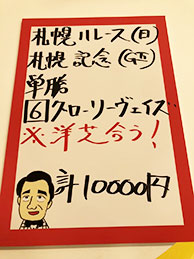 札幌11レース(日)
札幌記念(GⅡ)
単勝
6 クローリーヴェイズ
※洋芝合う!
計10000円